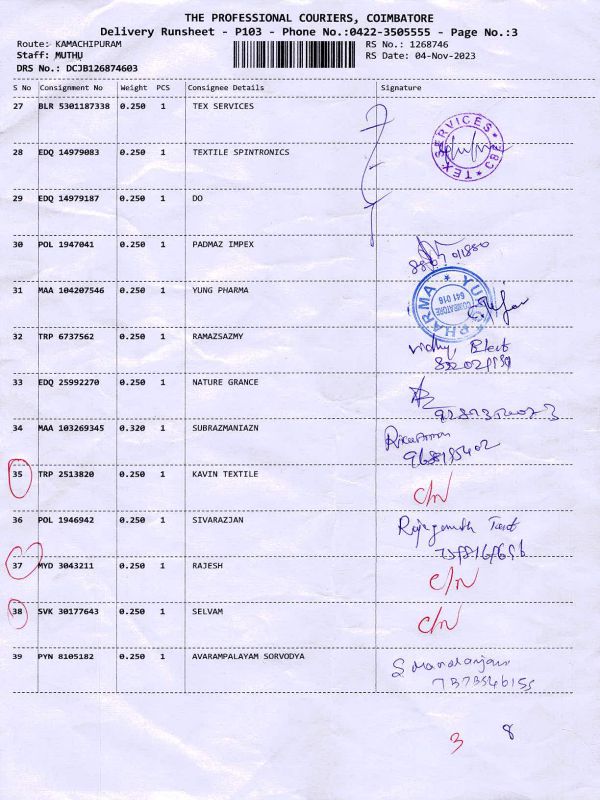 THE PROFESSIONAL COURIERS, COIMBATORE
Delivery Runsheet - P103 - Phone No.:0422-3505555 - Page No.:3
Route: KAMACHIPURAM RS No.: 1268746
Staff: MUTHU RS Date: 04-Nov-2023
DRS No.: DCJB126874603
S No Consignment No Weight PCS Consignee Details Signature
27 BLR 5301187338 0.250 1 TEX SERVICES
TEX SERVICES CBE
28 EDQ 14979083 0.250 1 TEXTILE SPINTRONICS
29 EDQ 14979187 0.250 1 DO
30 POL 1947041 0.250 1 PADMAZ IMPEX
31 MAA 104207546 0.250 1 YUNG PHARMA
YUNG PHARMA COIMBATORE 641 016
32 TRP 6737562 0.250 1 RAMAZSAZMY
33 EDQ 25992270 0.250 1 NATURE GRANCE
34 MAA 103269345 0.320 1 SUBRAZMANIAZN
35 TRP 2513820 0.250 1 KAVIN TEXTILE C/N
36 POL 1946942 0.250 1 SIVARAZJAN
37 MYD 3043211 0.250 1 RAJESH C/N
38 SVK 30177643 0.250 1 SELVAM C/N
39 PYN 8105182 0.250 1 AVARAMPALAYAM SORVODYA
7373546155
3 8